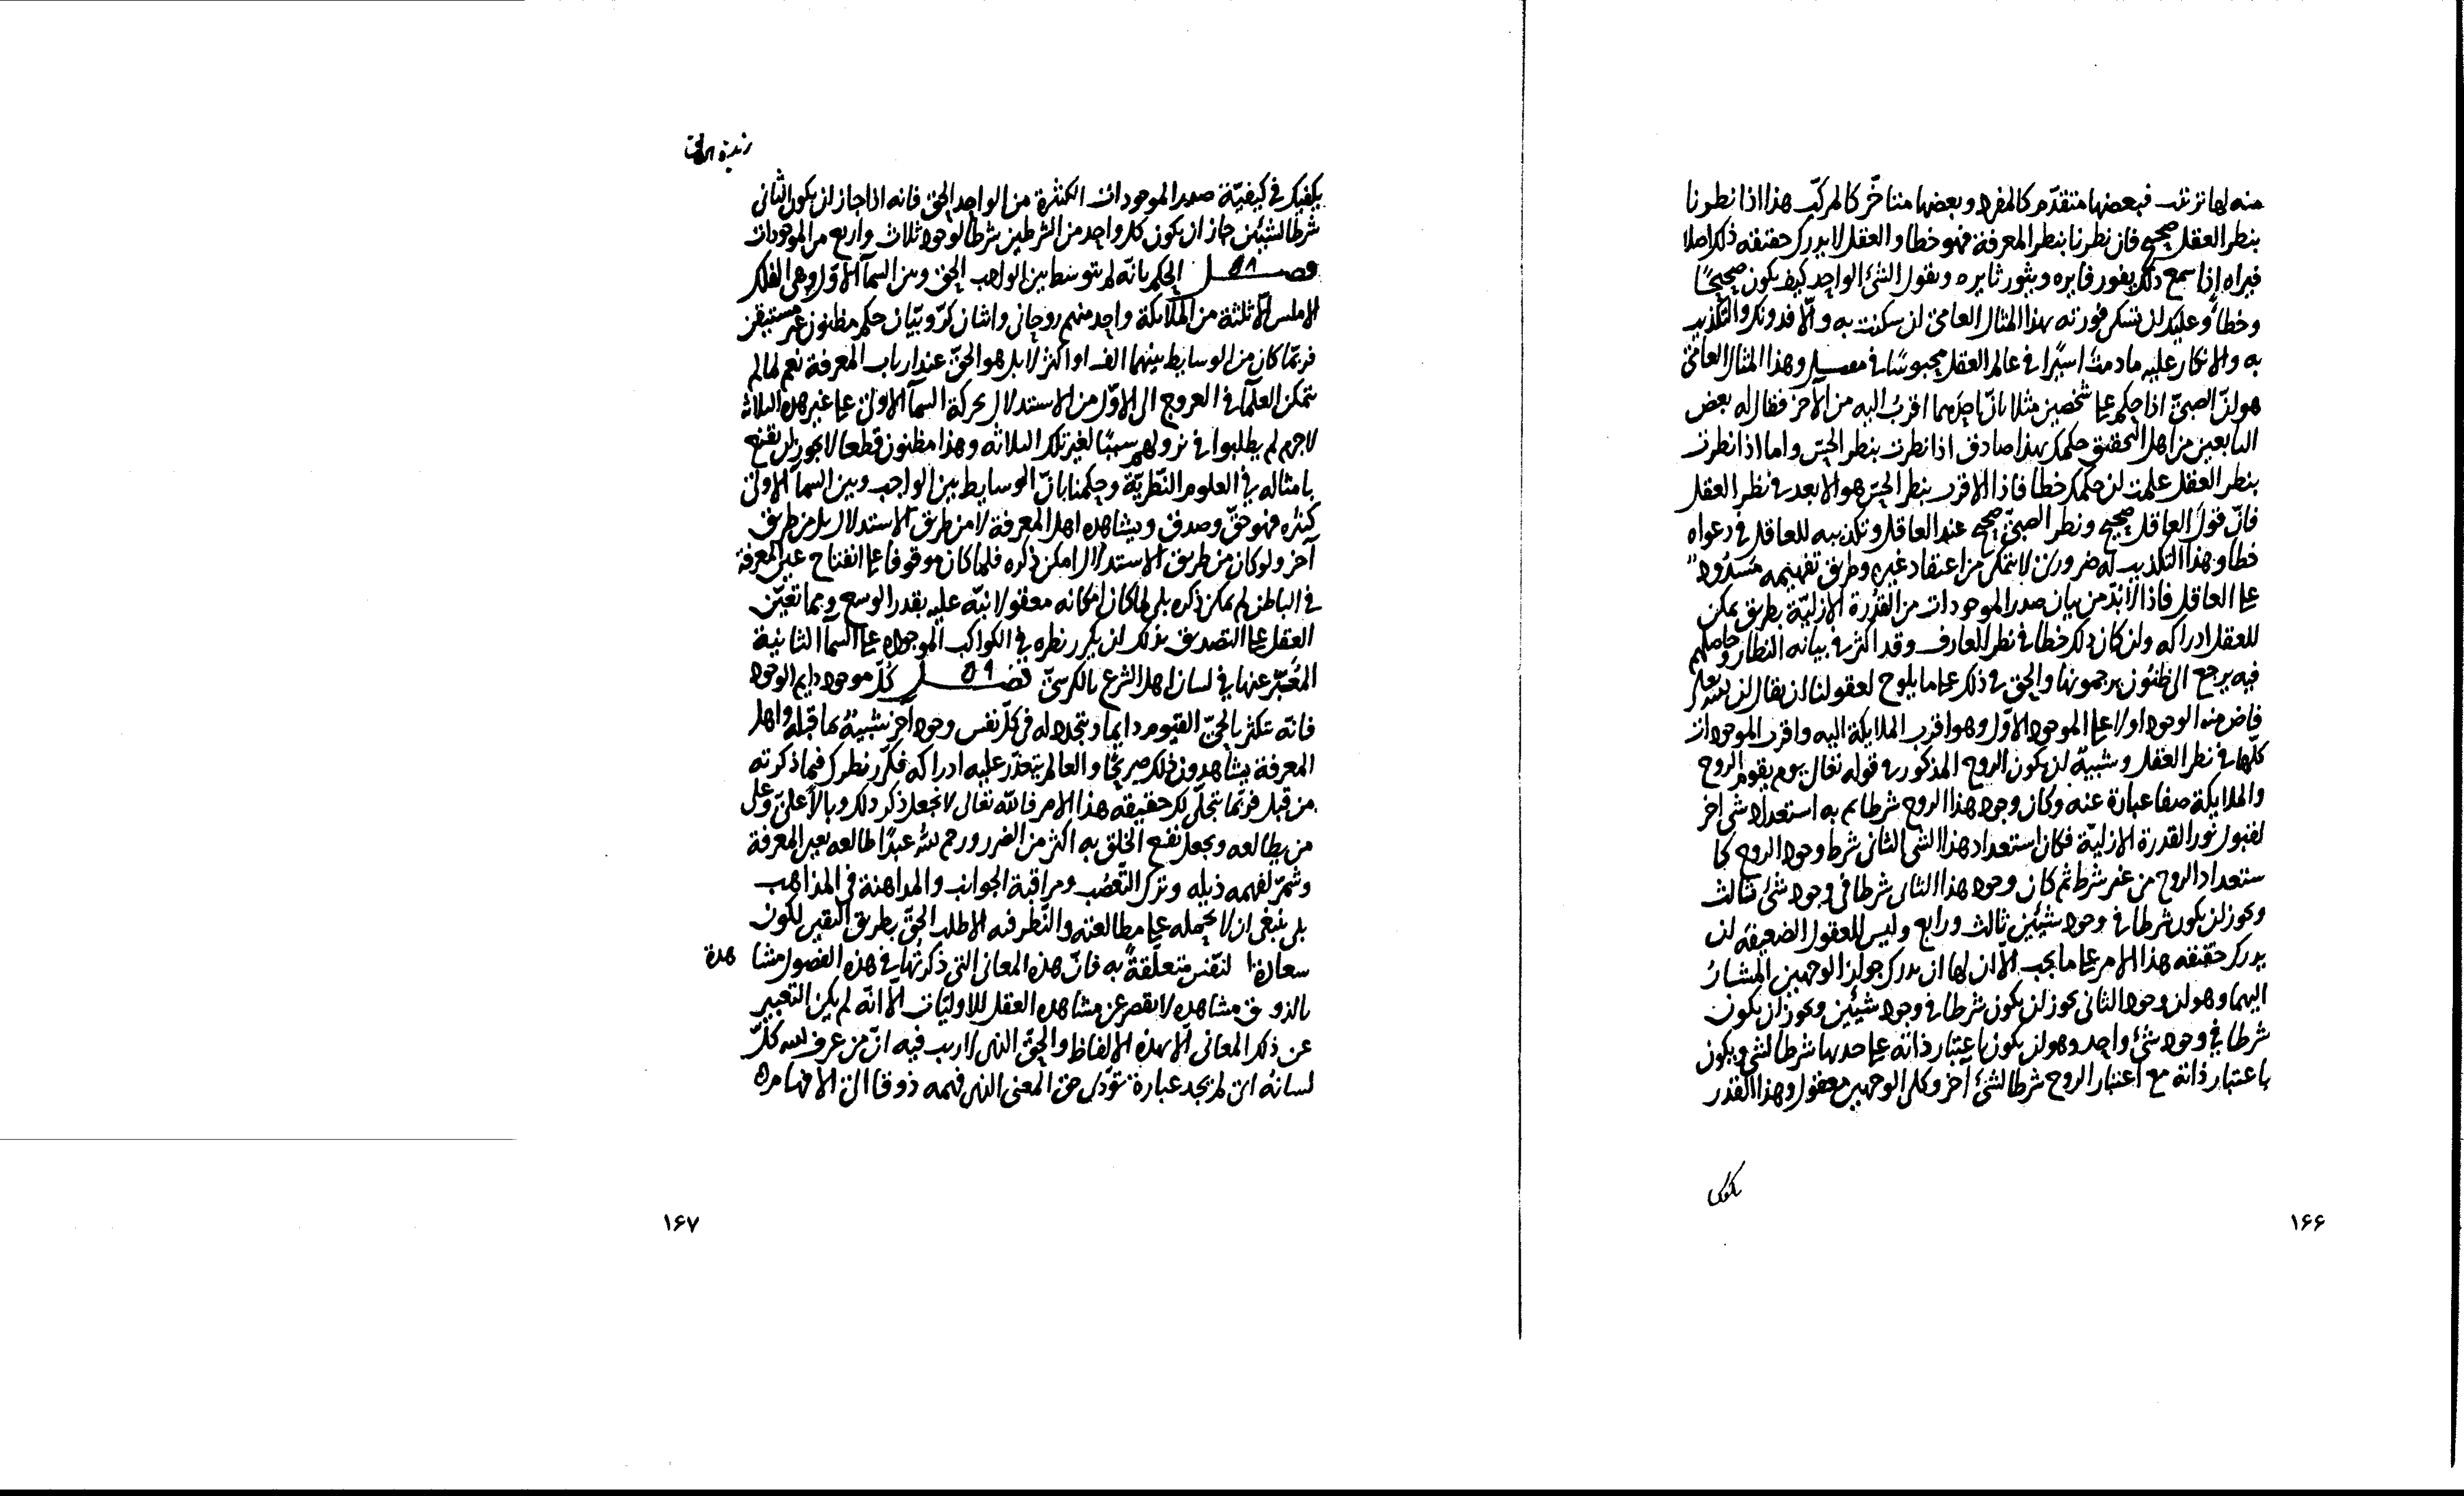 منه لها ترتيب فبعضها متقدّم كالمفرد وبعضها متأخّر كالمركّب هذا اذا نظرنا
بنظر العقل صحيح فان نظرنا بنظر المعرفة فهو خطأ والعقل لا يدرك حقيقة ذلك اصلا
فيراه اذا سمع ذلك يفور فايره ويثور ثايره ويقول الشئ الواحد كيف يكون صحيحًا
وخطأً وعليك ان تسكن فورته بهذا المثال العامى ان سكنت به والّا فدونك والتكذيب
به والانكار عليه ما دمت اسيرًا فى عالم العقل محبوسًا فى وهذا المثال العامى
هو ان الصبىّ اذا حكم على شخصين مثلا بانّ احدهما اقرب اليه من الآخر فقال له بعض
التابعين من اهل التحقيق حكمك بهذا صادق اذا نظرت بنظر الحسّ واما اذا نظرت
بنظر العقل علمت ان حكمك خطأ فاذا الاقرب بنظر الحسّ هو الابعد فى نظر العقل
فانّ قول العاقل صحيح ونظر الصبىّ صحيح عند العاقل وتكذيبه للعاقل فى دعواه
خطأ وهذا التكذيب له ضرورىّ لا يتمكن من اعتقاد غيره وطريق تفهيمه مسدودٌ
على العاقل فاذا لا بدّ من بيان صدر الموجودات من القدرة الازليّة بطريق يمكن
للعقل ادراكه وان كان ذلك خطأ فى نظر العارف وقد اكثر فى بيانه النظار وحاصلهم
فيه يرجع الى ظنون يرجمونها والحق فى ذلك على ما يلوح لعقولنا ان يقال ان الله تعالى
فاض منه الوجود اولا على الموجود الاوّل وهو اقرب الملايكة اليه واقرب الموجودات
كلّها فى نظر العقل ويشبه ان يكون الروح المذكور فى قوله تعالى يوم يقوم الروح
والملايكة صفا عبارة عنه وكان وجود هذا الروح شرطا تم به استعداد شئ اخر
لقبول نور القدرة الازليّة فكان استعداد هذا الشئ الثانى شرط وجود الروح كما
ستعداد الروح من غير شرط ثم كان وجود هذا الثانى شرطا فى وجود شئ ثالث
ويجوز ان يكون شرطا فى وجود شيئين ثالث ورابع وليس للعقول الضعيفة ان
يدرك حقيقة هذا الامر على ما يجب الّا ان لها ان تدرك جواز الوجهين المشار
اليهما وهو ان وجود الثانى يجوز ان يكون شرطا فى وجود شيئين ويجوز ان يكون
شرطا فى وجود شئ واحد وهو ان يكون باعتبار ذاته على حدتها شرطا لشئ ويكون
باعتبار ذاته مع اعتبار الروح شرطا لشئ آخر وكلى الوجهين معقول وهذا القدر
يكفيك
١۶۶
زبدة الحقايق
يكفيك فى كيفيّة صدر الموجودات الكثيرة من الواحد الحق فانه اذا جاز ان يكون الثانى
شرطا لشيئين جاز ان يكون كل واحد من الشرطين شرطا لوجود ثلاث واربع من الموجودات
فصل ٥٨ الحكم بانّه لم يتوسط بين الواجب الحق وبين السمآ الاوّل وهى الفلك
الاملس الّا ثلثة من الملايكة واحد منهم روحانى واثنان كرّوبيّان حكم مظنون غير مستيقن
فربّما كان من الوسايط بينهما الف او اكثر لا بل هو الحقّ عند ارباب المعرفة نعم لما لم
يتمكن العلمآ فى العروج الى الاوّل من الاستدلال بحركة السمآ الاولى على غير هذه الثلاثة
لا جرم لم يطلبوا فى نزولهم سببًا لغير تلك الثلاثة وهذا مظنون قطعا لا يجوز ان يقنع
بامثاله فى العلوم النّظريّة وحكمنا بانّ الوسايط بين الواجب وبين السمآ الاولى
كثيره فهو حقّ وصدق ويشاهده اهل المعرفة لا من طريق الاستدلال بل من طريق
آخر ولو كان من طريق الاستدلال امكن ذكره فلما كان موقوفا على انفتاح عين المعرفة
فى الباطن لم يمكن ذكره بلى لما كان امكانه معقولا نبّه عليه بقدر الوسع ومما تعيّن
العقل على التصديق بذلك ان يكرر نظره فى الكواكب الموجوده على السمآ الثانية
المُعَبّر عنها فى لسان اهل الشرع بالكرسىّ فصل ٥٩ كلّ موجود دايم الوجود
فانّه يتكثر بالحىّ القيوم دايما ويتجدد له فى كلّ نفس وجود آخر شبيهٌ بما قبله واهل
المعرفة يشاهدون ذلك صريحًا والعالم يتعذّر عليه ادراكه فكرّر نظرك فيما ذكرته
من قبل فربّما تتجلّى لك حقيقة هذا الامر فالله تعالى لا تجعل ذكر ذلك وبالًا علىّ وعلى
من يطالعه ويجعل نفع الخلق به اكثر من الضرر ورحم الله عبدًا طالعه بعين المعرفة
وشمّر لفهمه ذيله وترك التّعصّب ومراقبة الجوانب والمداهنة فى المذاهب
بلى ينبغى ان لا يحمله على مطالعته والنّظر فيه الا طلب الحقّ بطريق اليقين لكون
سعادة النّفس متعلّقةً به فانّ هذه المعانى التى ذكرتها فى هذه الفصول مشاهدة
بالذوق مشاهده لا يقصر عن مشاهده العقل للاوليّات الّا انّه لم يكن التعبير
عن ذلك المعانى الّا بهذه الالفاظ والحق الذى لا ريب فيه انّ من عرف الله كلّ
لسانه اى لم يجد عبارة تؤدّى حق المعنى الذى فهمه ذوقا الى الافهام
١۶٧